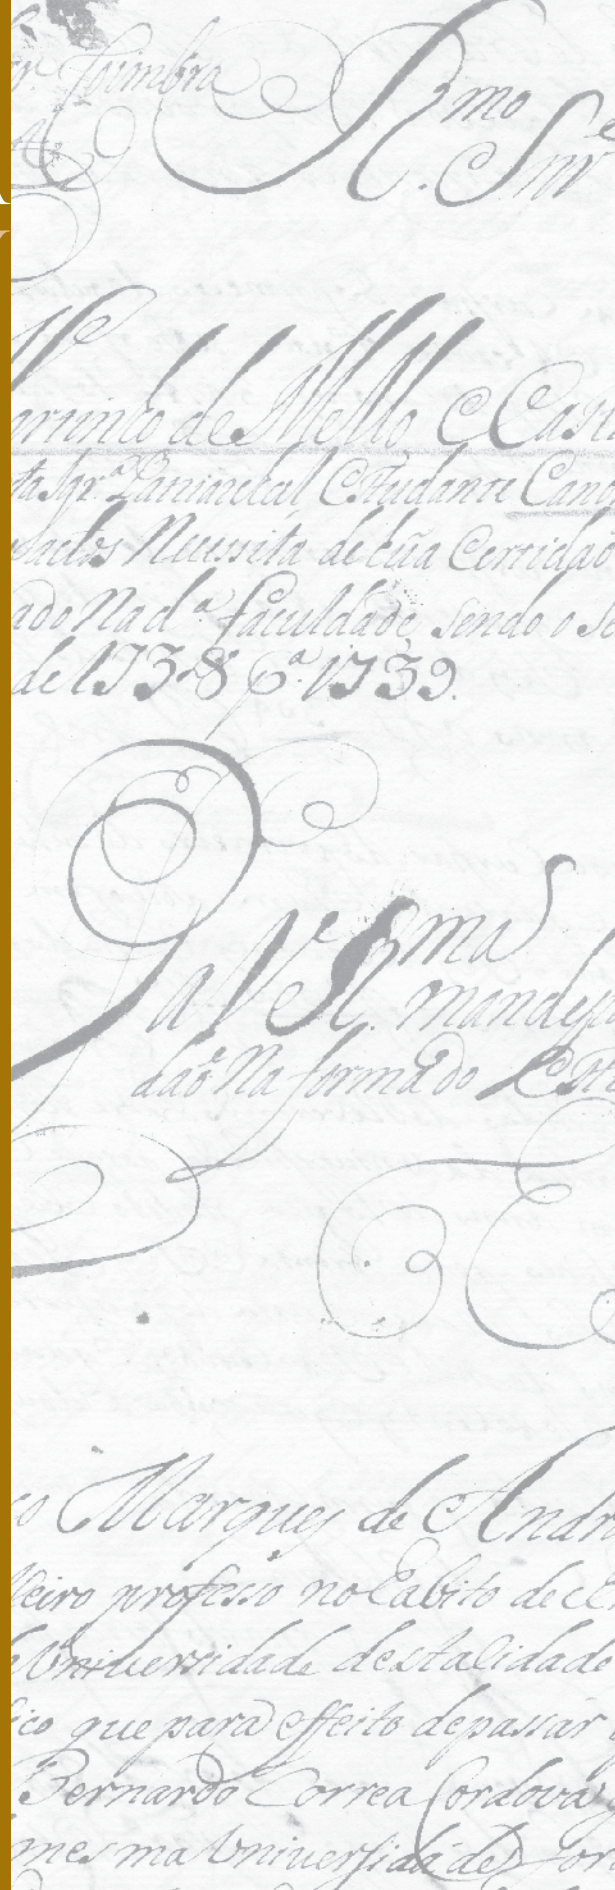 Coimbra R.mo Snr
de Mello e Cast
Patriarchal Estudante Cano
Necessita de hũa Certidaõ
ado Na d.a faculdade, sendo o se
de 1738 p.a 1739.
P a V. R.ma mande pa
daõ Na forma do Est
E
co Marques de Andr
leiro professo no habito de
Universidade desta Cidade
ico que para effeito de passar
Bernardo Correa Cordova
mesma Universidade